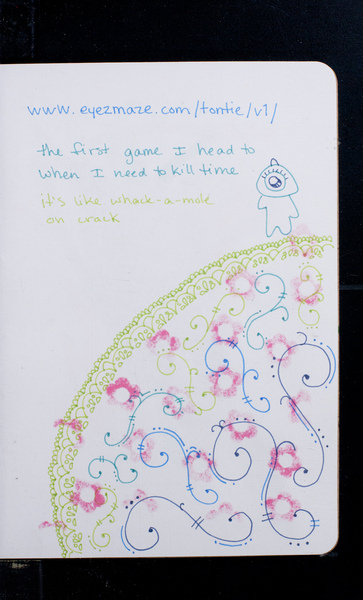 www.eyezmaze.com/tontie/v1/
the first game I head to
when I need to kill time
it's like whack-a-mole
on crack